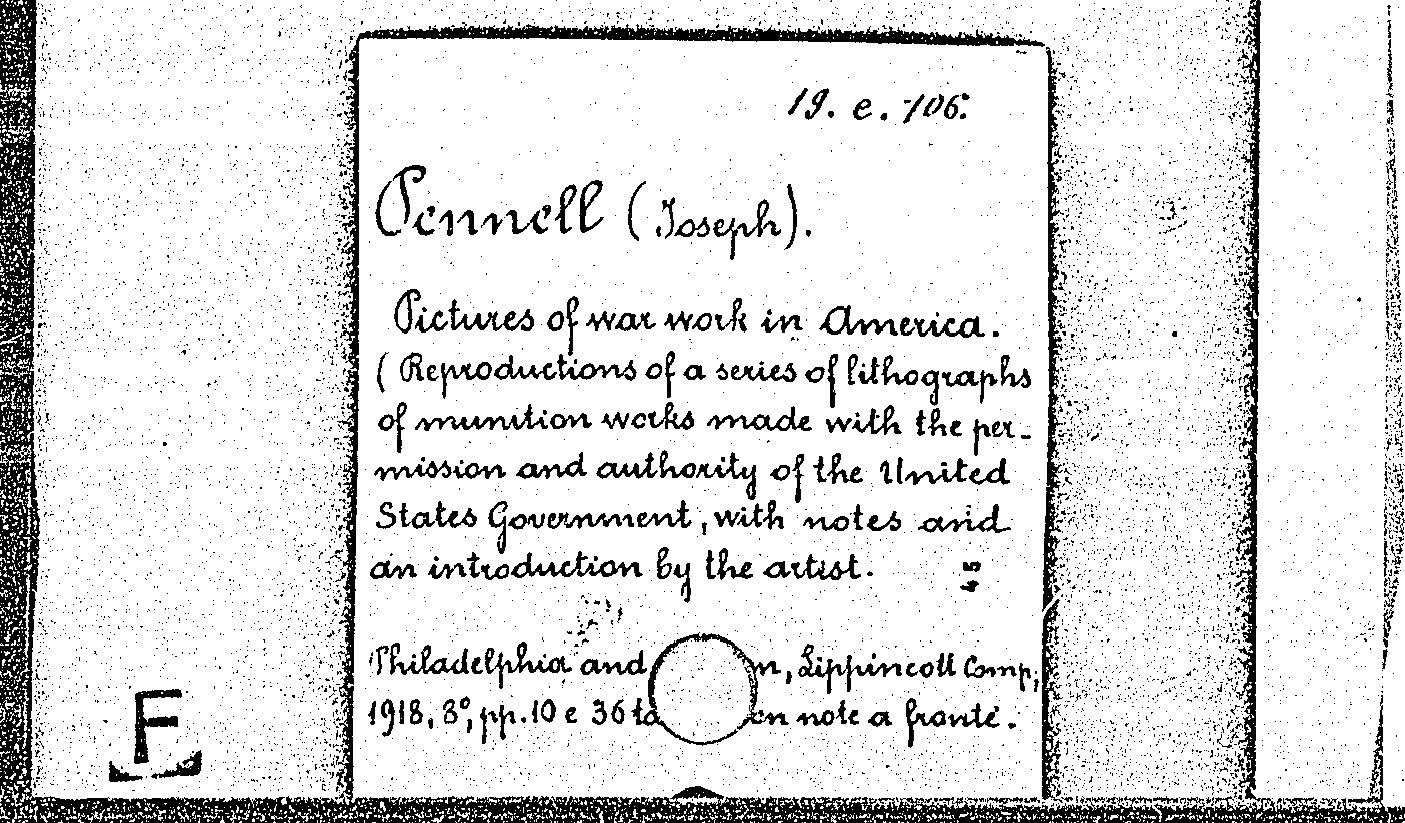 19. e. 106.
Pennell (Joseph).
Pictures of war work in America.
(Reproductions of a series of lithographs
of munition works made with the per-
mission and authority of the United
States Government, with notes and
an introduction by the artist.
45
Philadelphia and n, Lippincott Comp,
1918, 8°, pp. 10 e 36 ta on note a fronte.
F